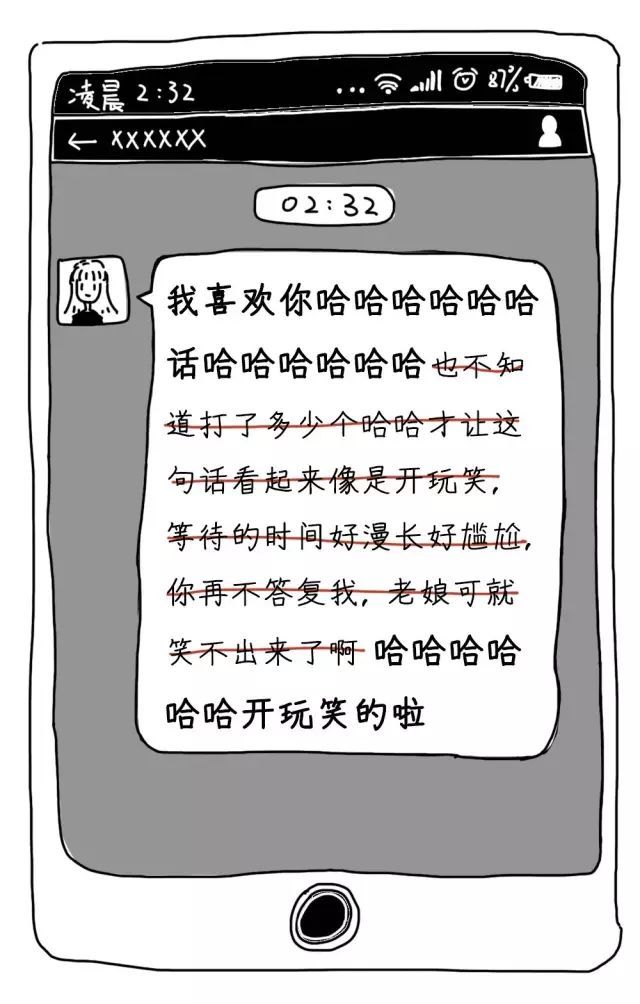 凌晨 2:32 ... 87%
← XXXXXX
02:32
我喜欢你哈哈哈哈哈哈
话哈哈哈哈哈哈也不知
道打了多少个哈哈才让这
句话看起来像是开玩笑,
等待的时间好漫长好尴尬,
你再不答复我,老娘可就
笑不出来了啊 哈哈哈哈
哈哈开玩笑的啦